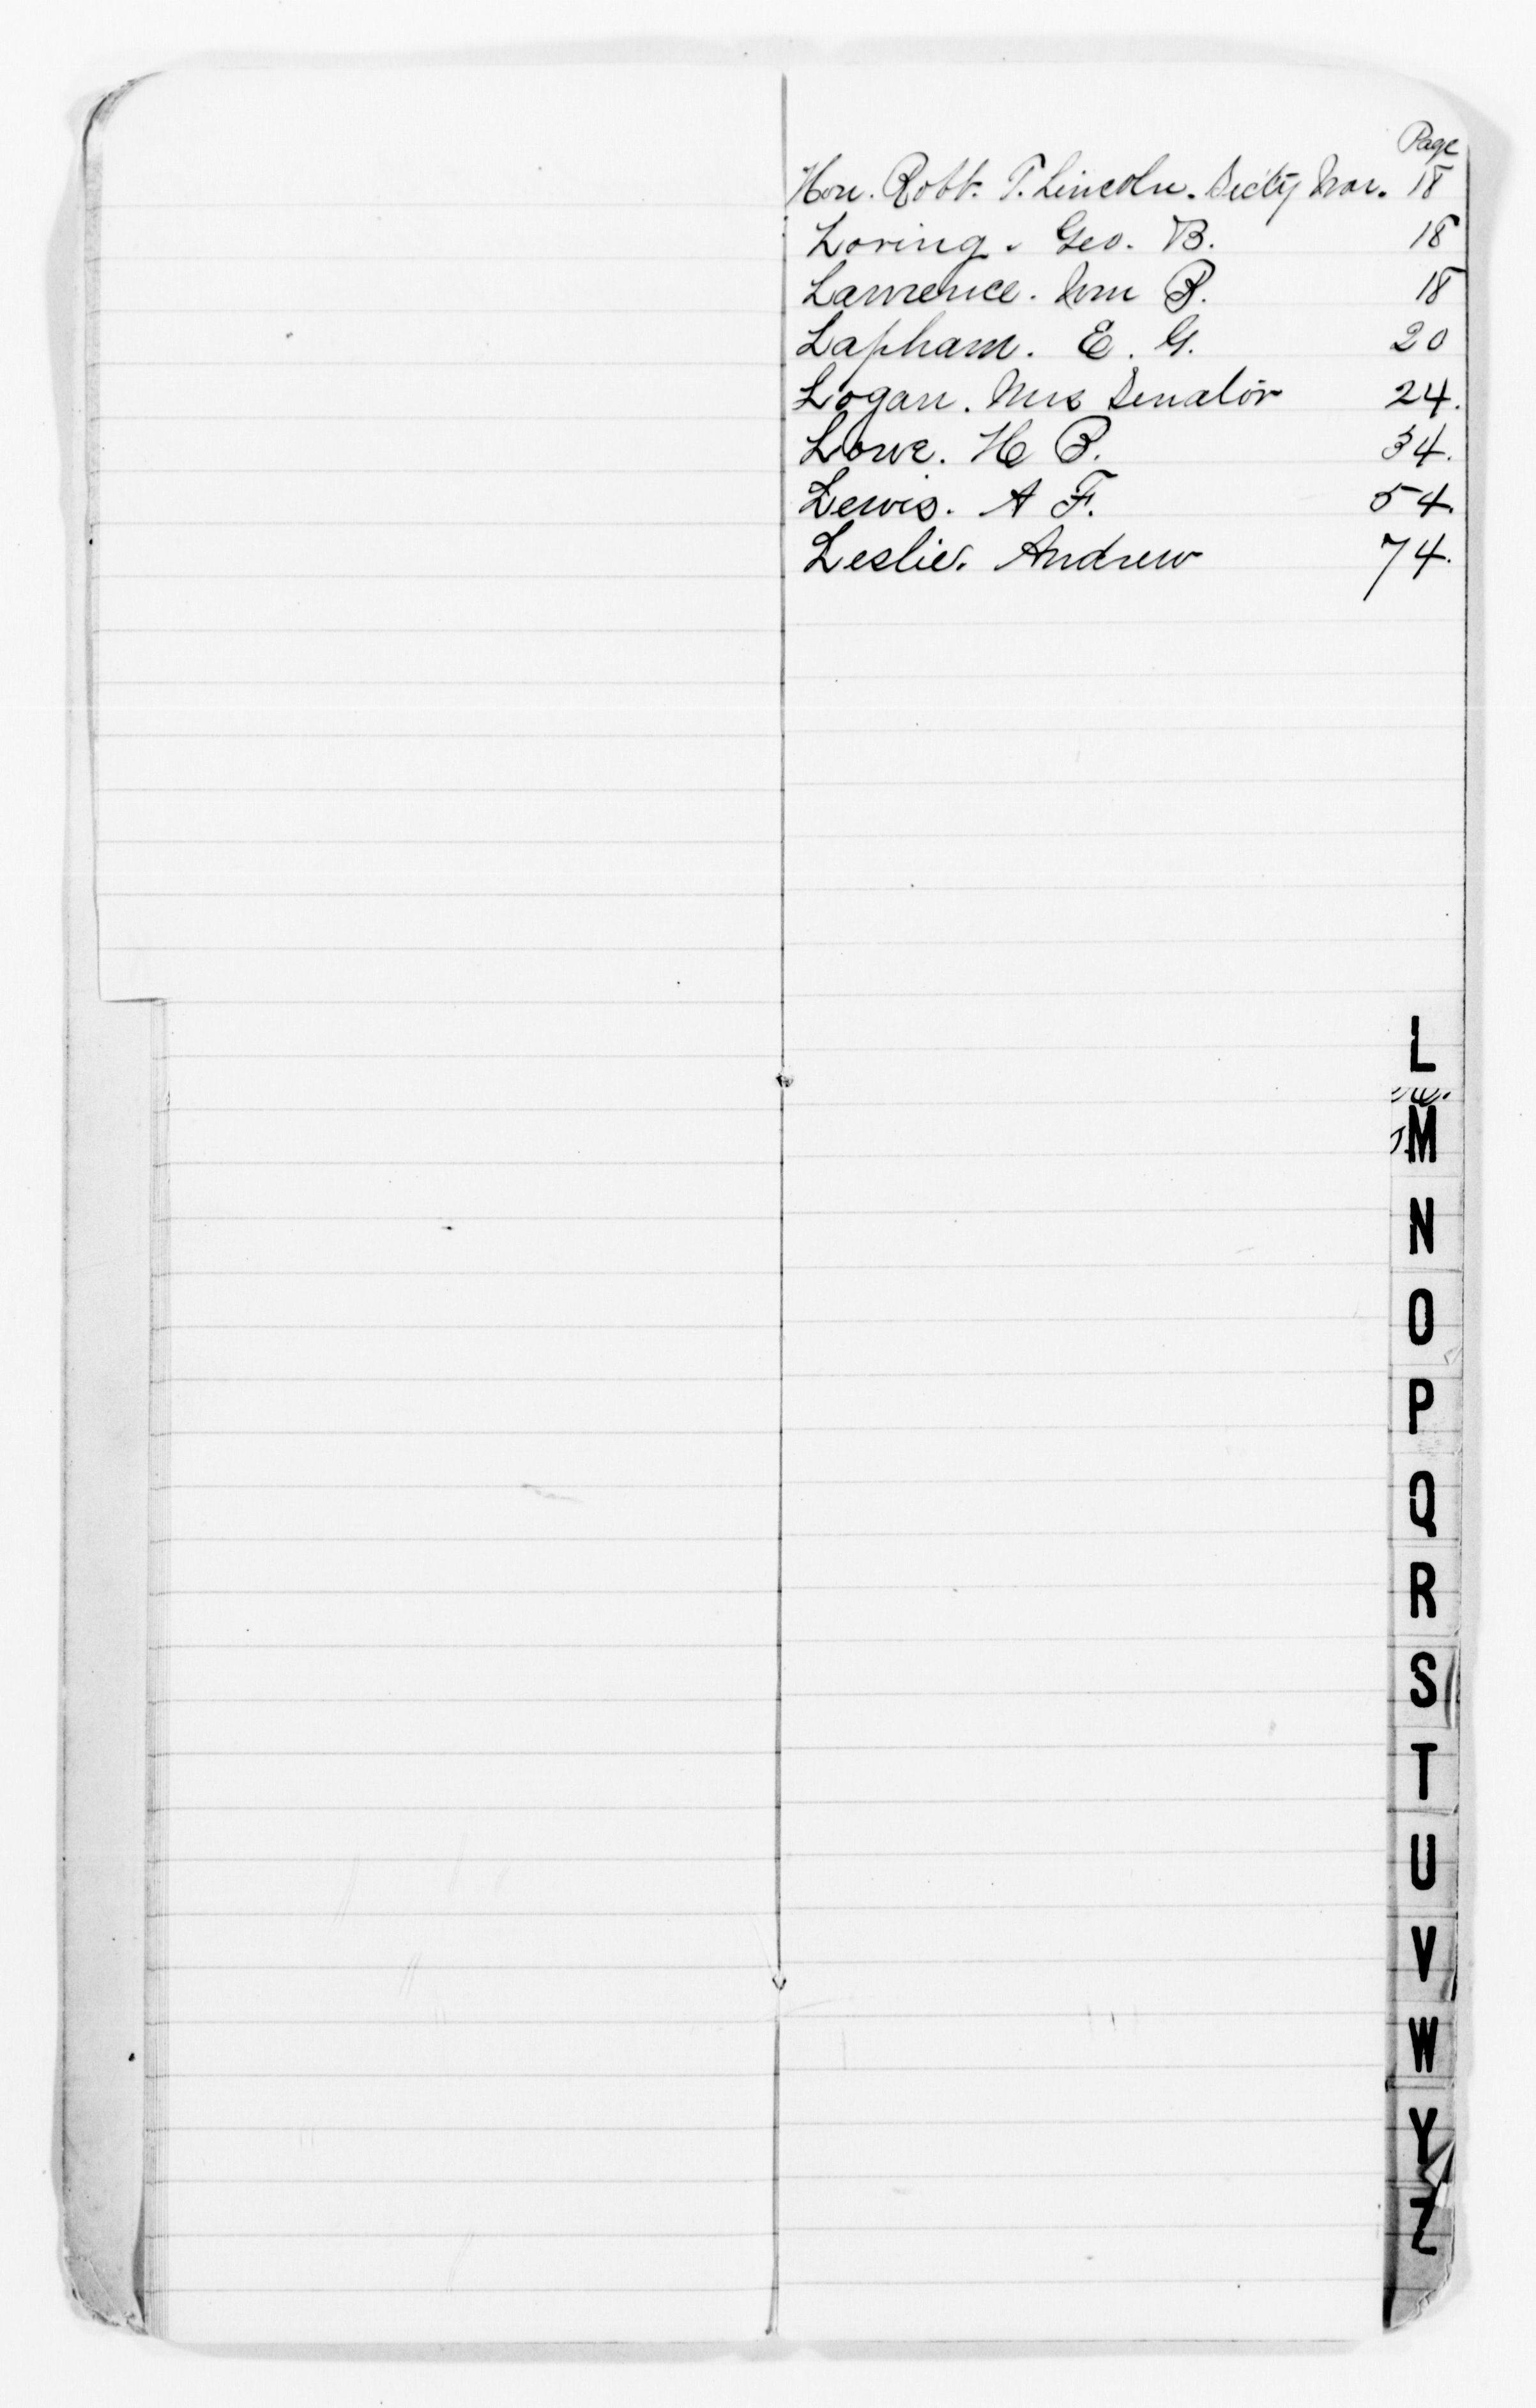 Page
Hon. Robt. T. Lincoln. Secty War. 18
Loring. Geo. B. 18
Lawrence. Wm B. 18
Lapham. E. G. 20
Logan. Mrs Senator 24.
Lowe. H B. 34.
Lewis. A F. 54.
Leslie. Andrew 74.
L
M
N
O
P
Q
R
S
T
U
V
W
Y
Z